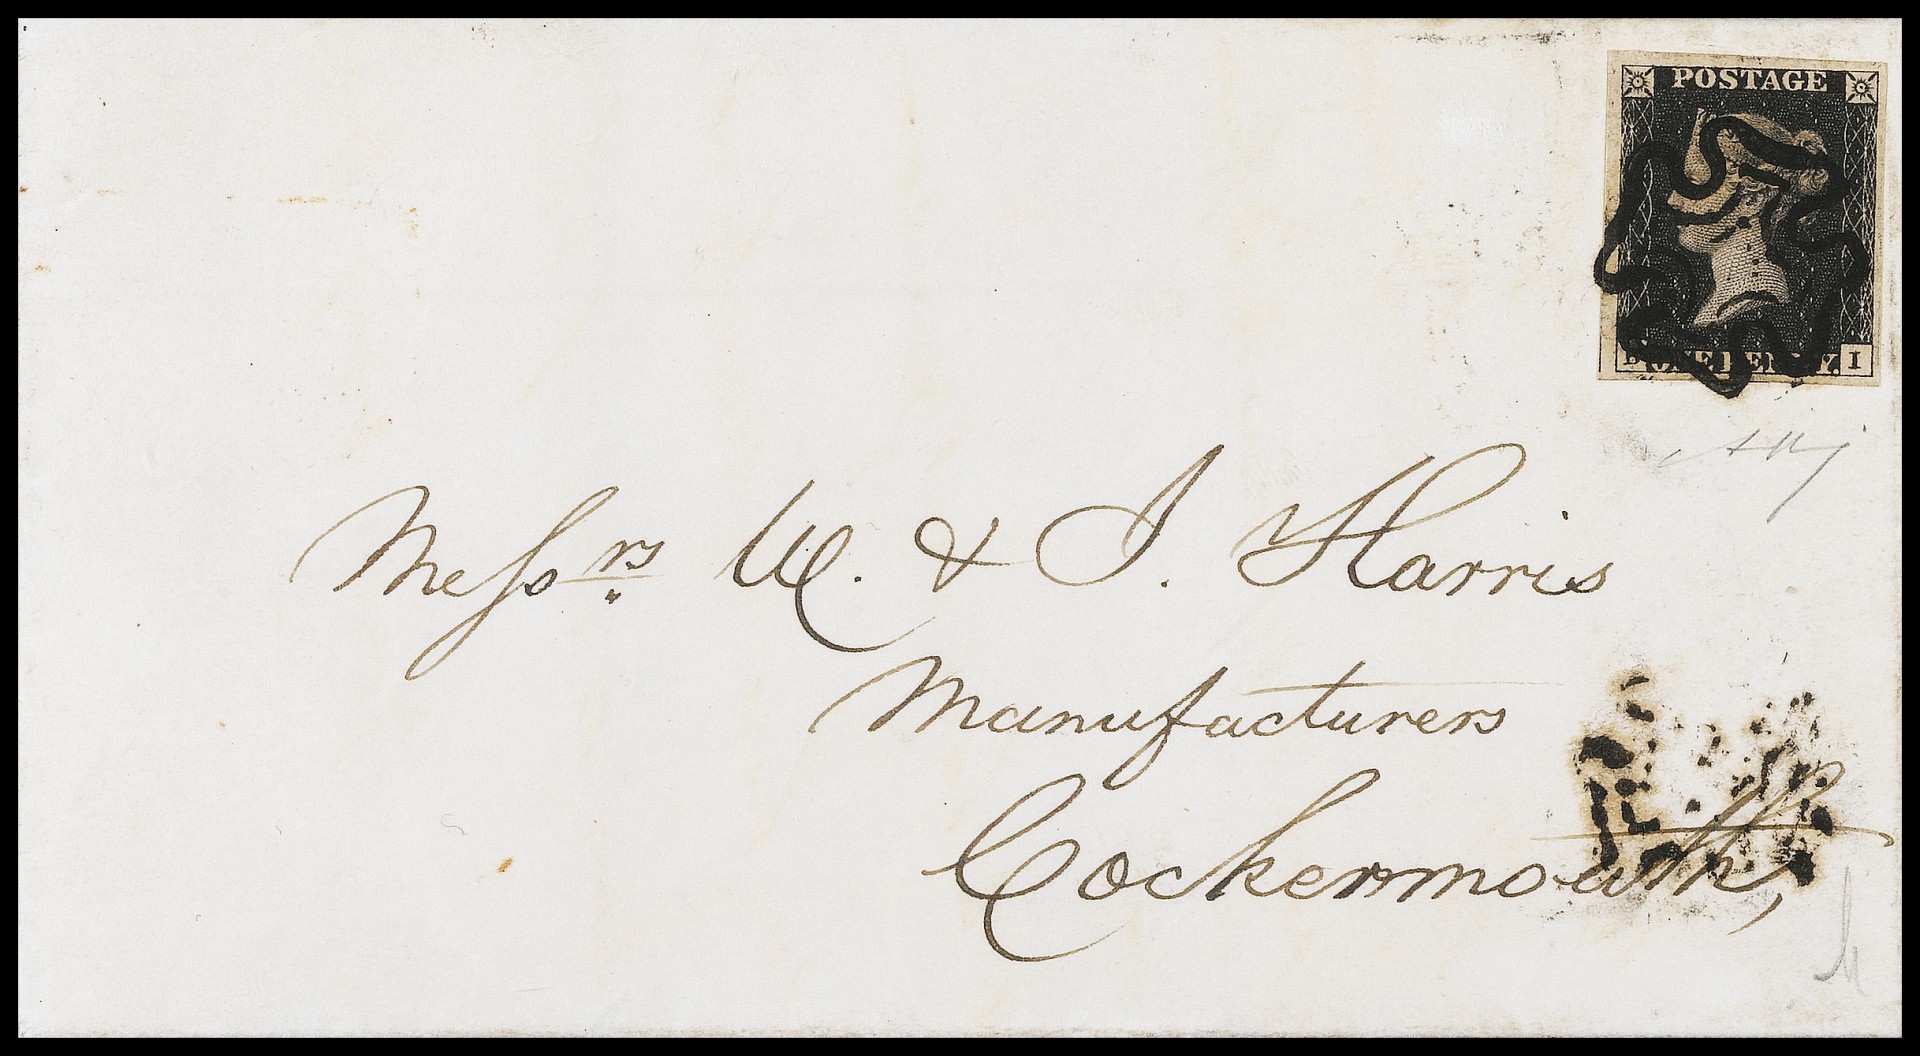 POSTAGE
ONE PENNY. I
Messrs W. & J. Harris
Manufacturers
Cockermouth,